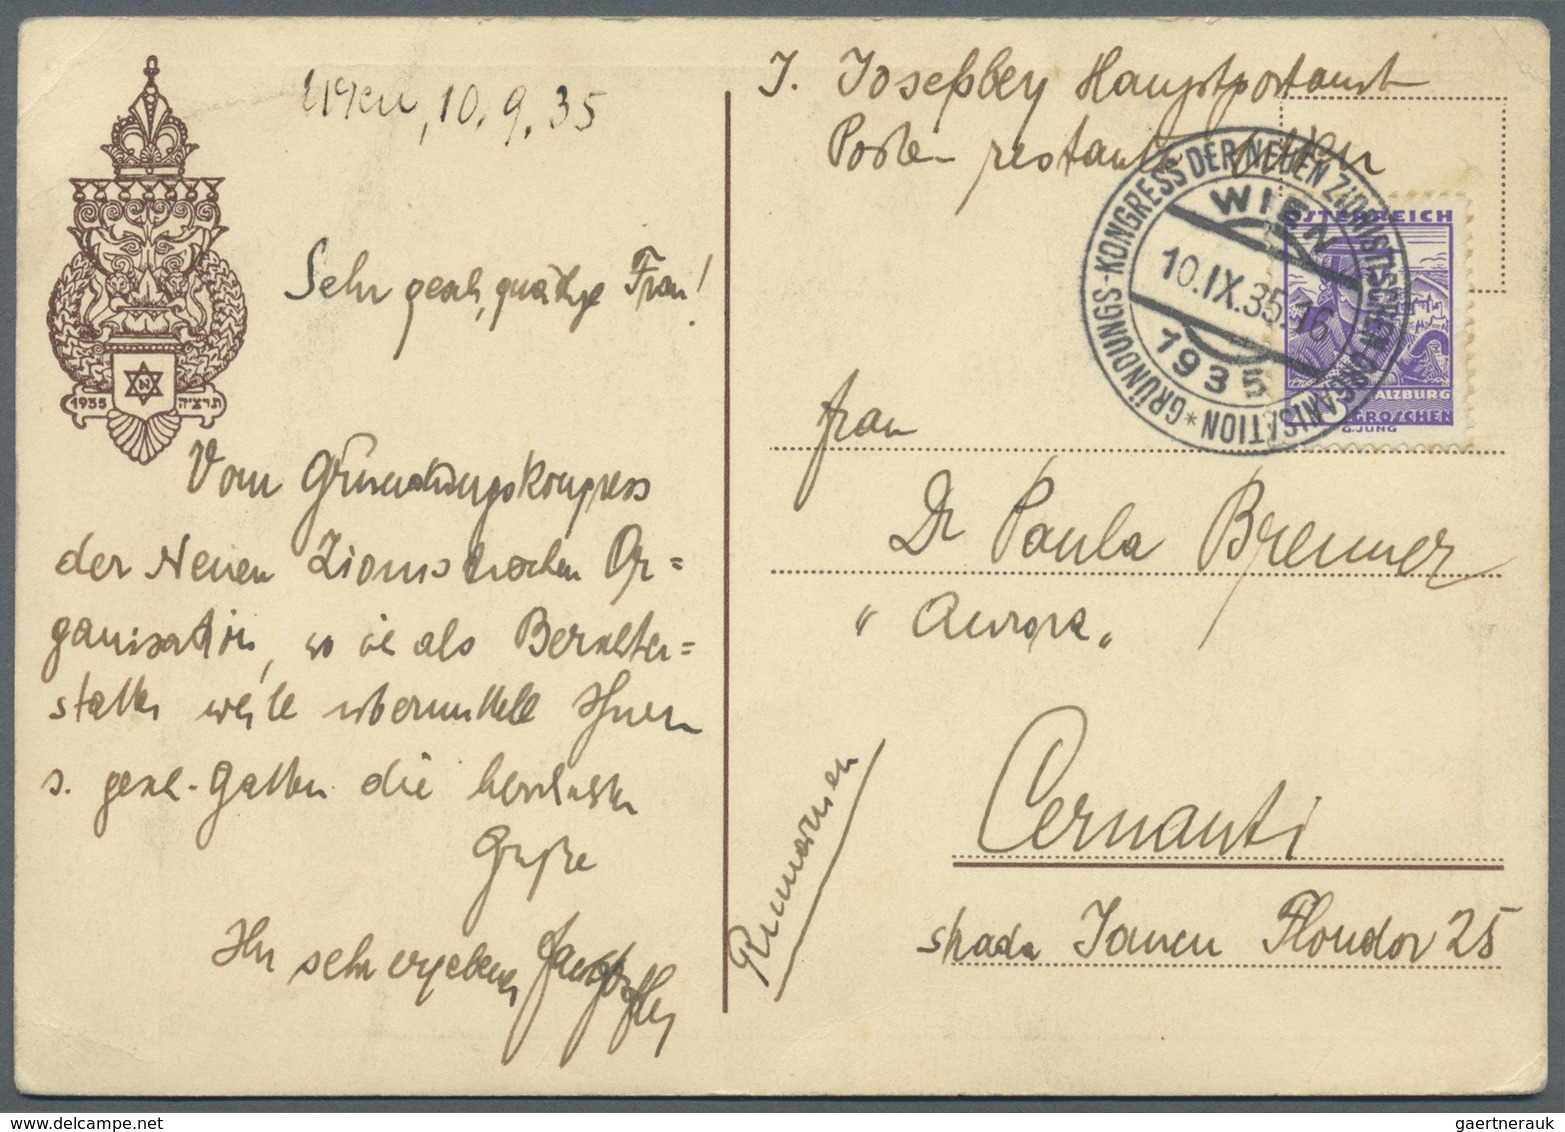 Wien, 10. 9. 35
1935
תרצ״ה
N
Sehr geeh, gnädige Frau!
Vom Gründungskongress
der Neuen Zionistischen Or=
ganisation, wo ich als Berichter=
statter weile übermittelt Ihnen
geehr. Gatten die herzlichsten
Grüße
Ihr sehr ergebener
J. Josephbey Hauptpostamt
Poste restante Wien
GRÜNDUNGS-KONGRESS DER NEUEN ZIONISTISCHEN ORGANISATION *
WIEN
10.IX.35.16
1935
ÖSTERREICH
SALZBURG
GROSCHEN
G.JUNG
Frau
Dr Paula Brenner
"Aurora"
Cernauti
strada Jancu Flondor 25
Rumänien
gaertnerauk